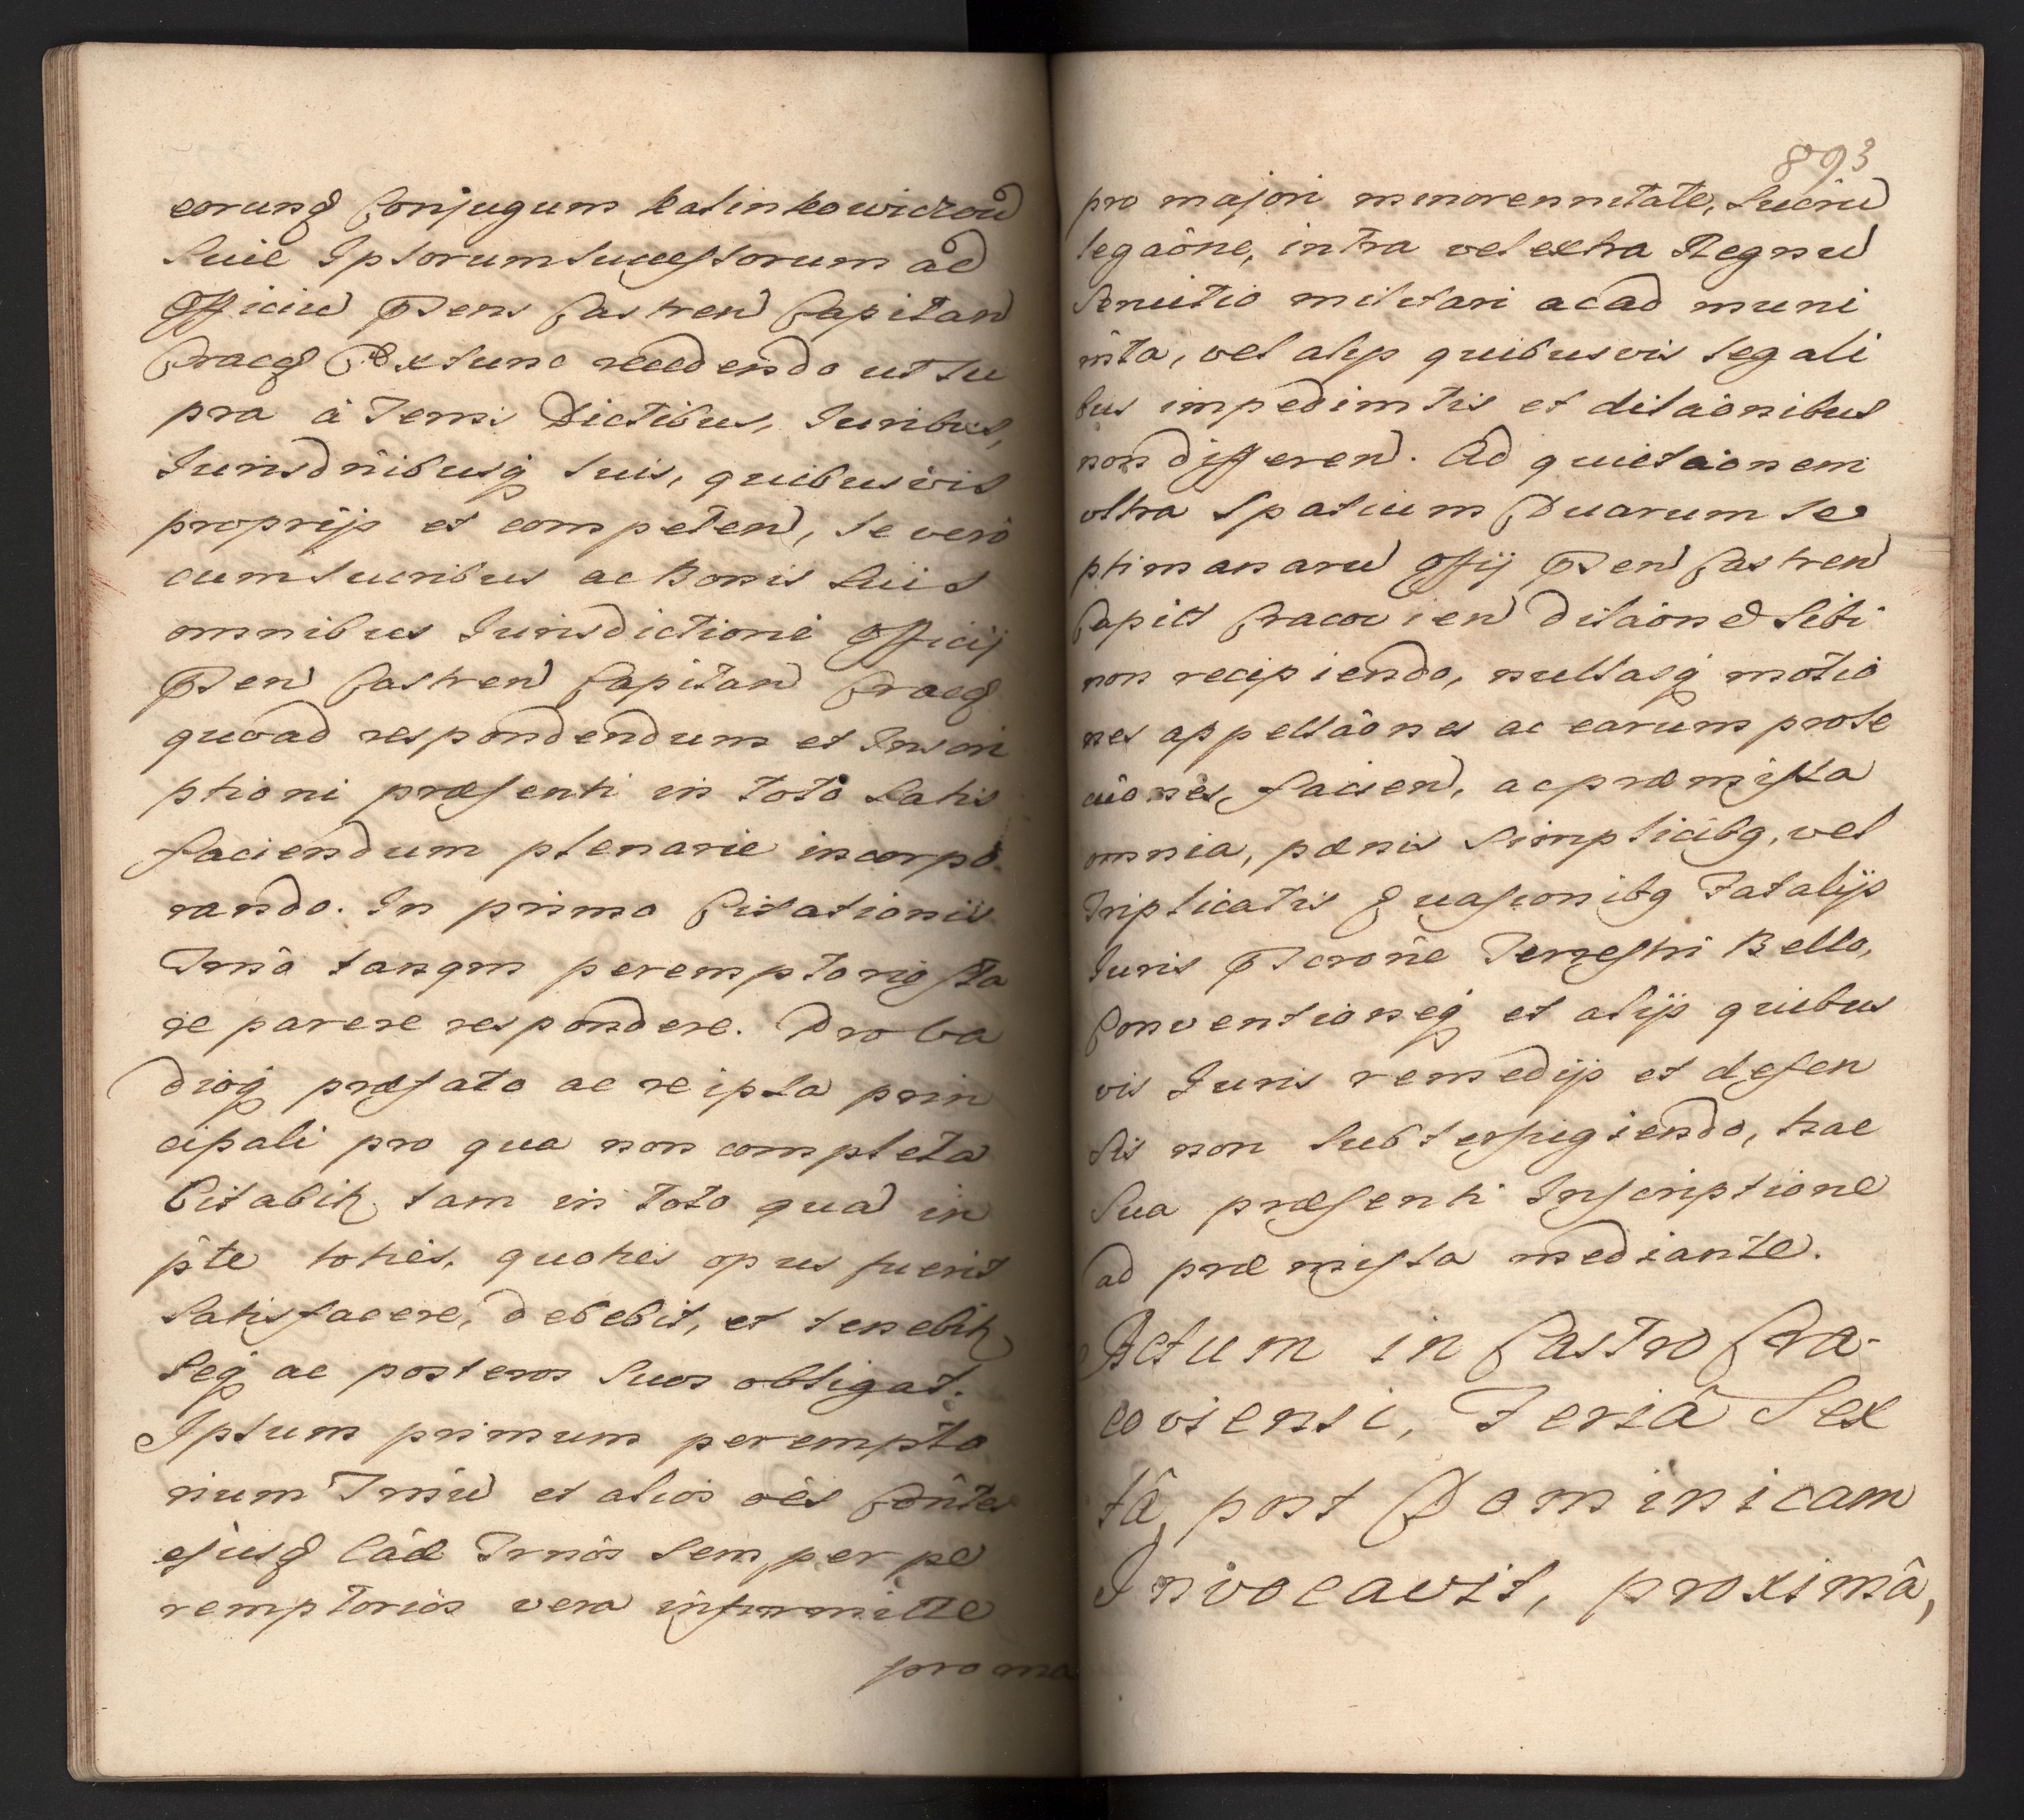 eorunq Conjugum Kalinkowiczou
Suie Ipsorum Successorum ad
Officiu Psens Castren Capitan
Cracq Extunc recedendo ut su
pra à Terris Dictibus, Juribus,
Jurisdnibusq suis, quibusvis
proprijs et competen, se vero
cum sucribus ac Bonis suis
omnibus Jurisdictioni Officij
Psen Castren Capitan Cracq
quoad respondendum et Inscri
ptioni præsenti in toto satis
faciendum plenarie incorpo.
rando. In primo Citationis
Trnô tanqm peremptorio sta
re parere respondere. Proва
dioq præfato ac re ipsa prin
cipali pro qua non completa
Citabitr tam in toto qua in
pte toties, quoties opus fuerit
Satisfacere, debebit, et tenebitr
Seq ac posteros suos obligat.
Ipsum primum perempto
rium Trnû et alios oes Contes
ejusq Câæ Trnôs semper pe
remptorios vera infirmitte
pro ma
893
pro majori minorennitate, Sucriu
legaône, intra vel extra Regnu
Servitio militari ac ad muni
mta, vel alijs quibusvis legali
bus impedimtis et dilaônibus
non differen. Ad quietaônem
ultra Spatium Duarum Se
ptimanaru Offij Psen Castren
Capitt Cracovien dilaône Sibi
non recipiendo, nullasq motio
nes appellaônes ac earum prose
cuônes facien, ac præmissa
omnia, pænis Simplicibq, vel
Triplicatis Evasionibq Fatalijs
Juris Pscrône Terrestri Bello,
Conventioneq et alijs quibus
vis Juris remedijs et defen
sis non Subterfugiendo, hac
Sua præsenti Inscriptione
ad præmissa mediante.
Actum in Castro Cra-
coviensi, Feriâ Sex
tâ, post Dominicam
Invocavit, proximâ,